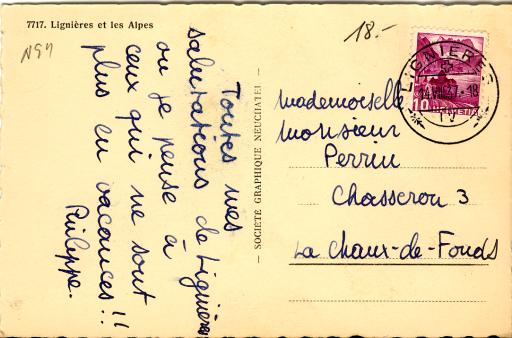 7717. Lignières et les Alpes
18.-
Toutes mes
salutations de Lignières
où je pense à
ceux qui ne sont
plus en vacances!!
Philippe.
SOCIÉTÉ GRAPHIQUE NEUCHATEL
LIGNIERES
10 HELVETIA
mademoiselle
monsieur
Perrin
Chasseron 3
La Chaux-de-Fonds